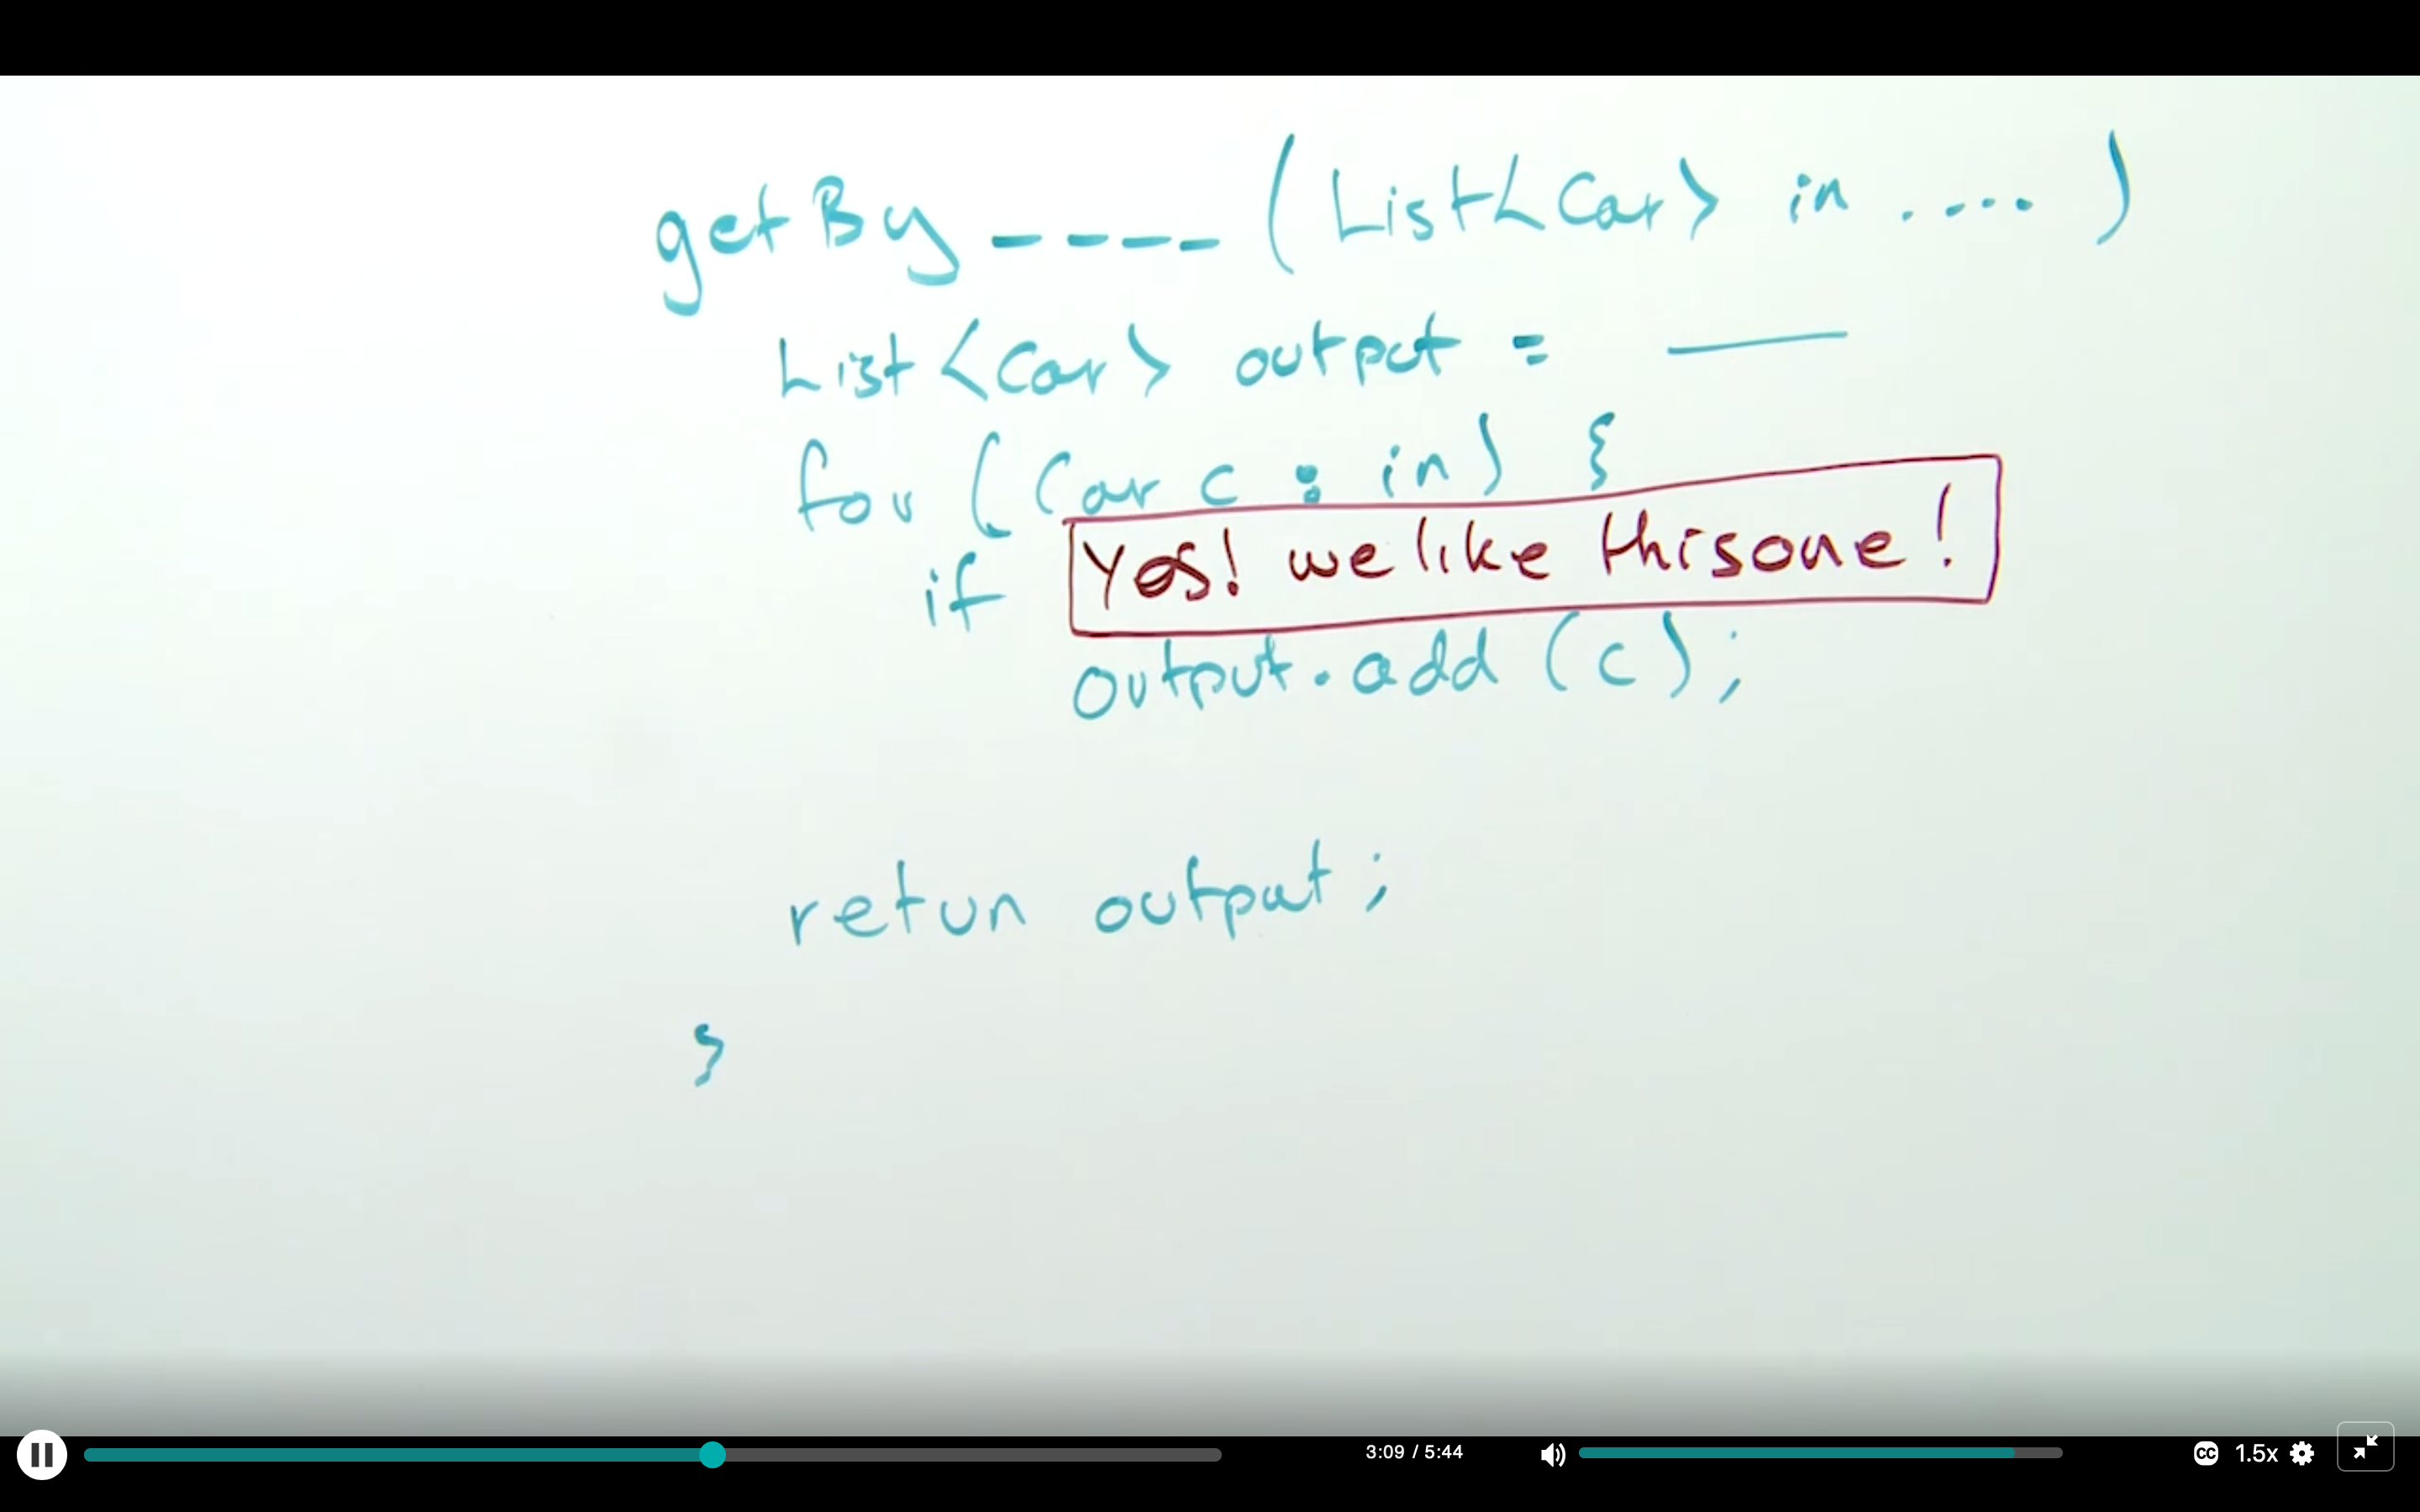 getBy____(List<Car> in ....)
List<Car> output = ___
for (Car c : in) {
if Yes! we like this one!
output.add(c);
retun output;
}
3:09 / 5:44
CC 1.5x